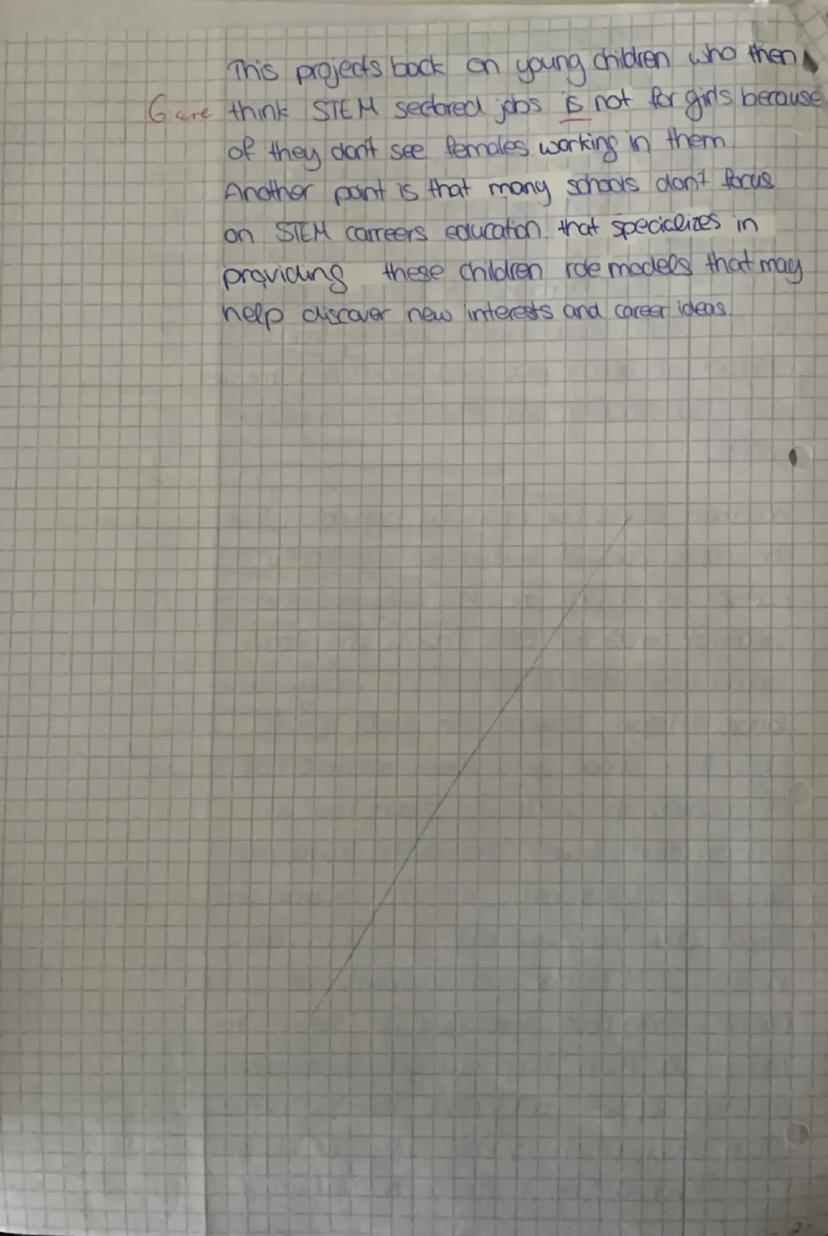 This projects back on young children who then
G are think STEM sectored jobs is not for girls because
of they don't see females working in them.
Another point is that many schools don't focus
on STEM carreers education that specializes in
providing these children role models that may
help discover new interests and career ideas.